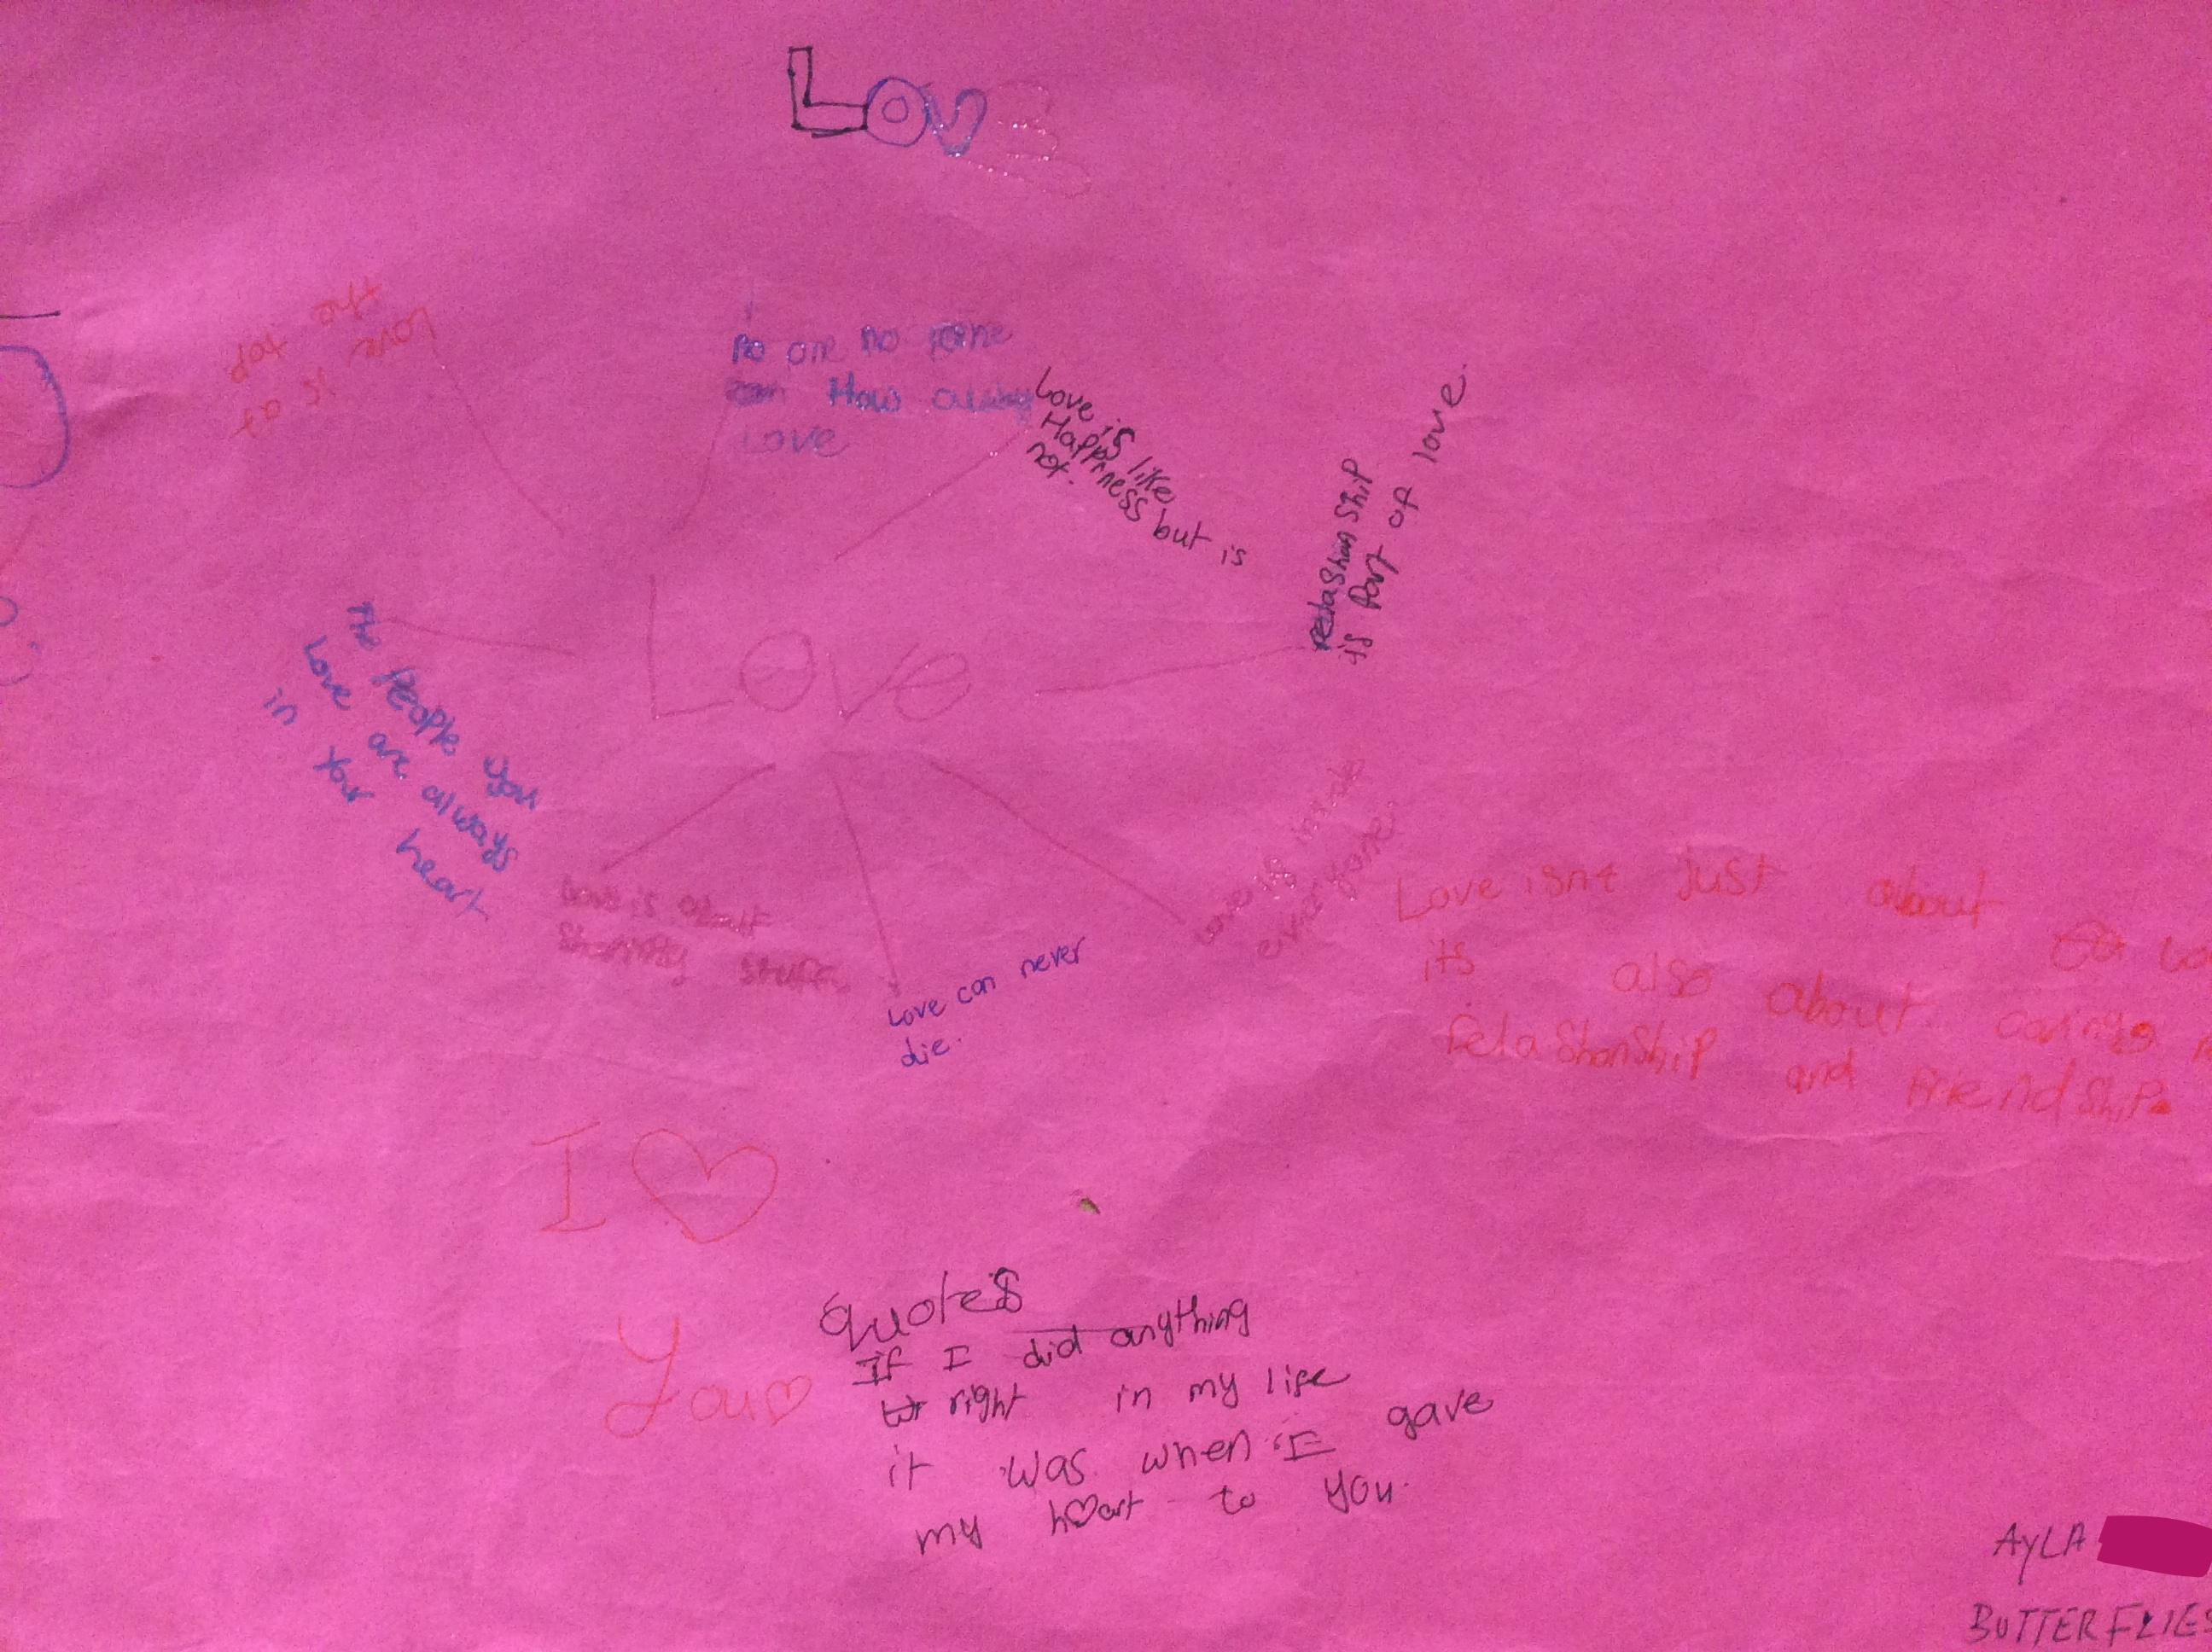 LOVE
Love is at
the top
no one no
How away
Love
Love is like
Happness but is
not.
relaShonShip
is Part of love.
Love
The People you
Love are always
in Your heart
Love is about
Sharing stuff
Love can never
die.
Love is inside
everyone.
Love isnt just about
its also about caring
relaShonShip and FriendShip.
I ♡
You ♡
Quotes
If I did anything
right in my life
it was when I gave
my h♡art to you.
AyLA
BUTTERFLIES